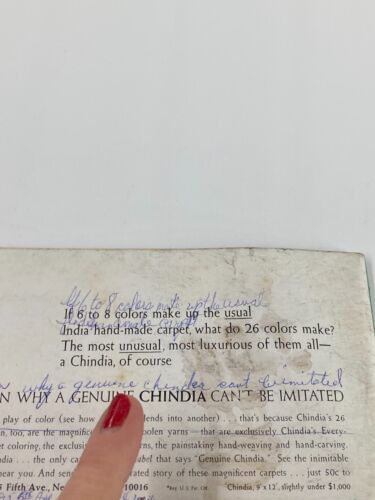 If 6 to 8 colors make up the usual
If 6 to 8 colors make up the usual
India hand-made carpet, what do 26 colors make?
The most unusual, most luxurious of them all—
a Chindia, of course
why a genuine chindia can't be imitated
N WHY A GENUINE CHINDIA CAN'T BE IMITATED
play of color (see how lends into another) . . . that's because Chindia's 26
too, are the magnific oolen yarns—that are exclusively Chindia's. Every-
colorful e rns, the painstaking hand-weaving and hand-carving.
ndia . . . the only ca abel that says "Genuine Chindia." See the inimitable
near you. And sen rated story of these magnificent carpets . . . just 50c to
Fifth Ave., Ne 10016 *Reg. U.S. Pat. Off. Chindia, 9' x 12', slightly under $1,000